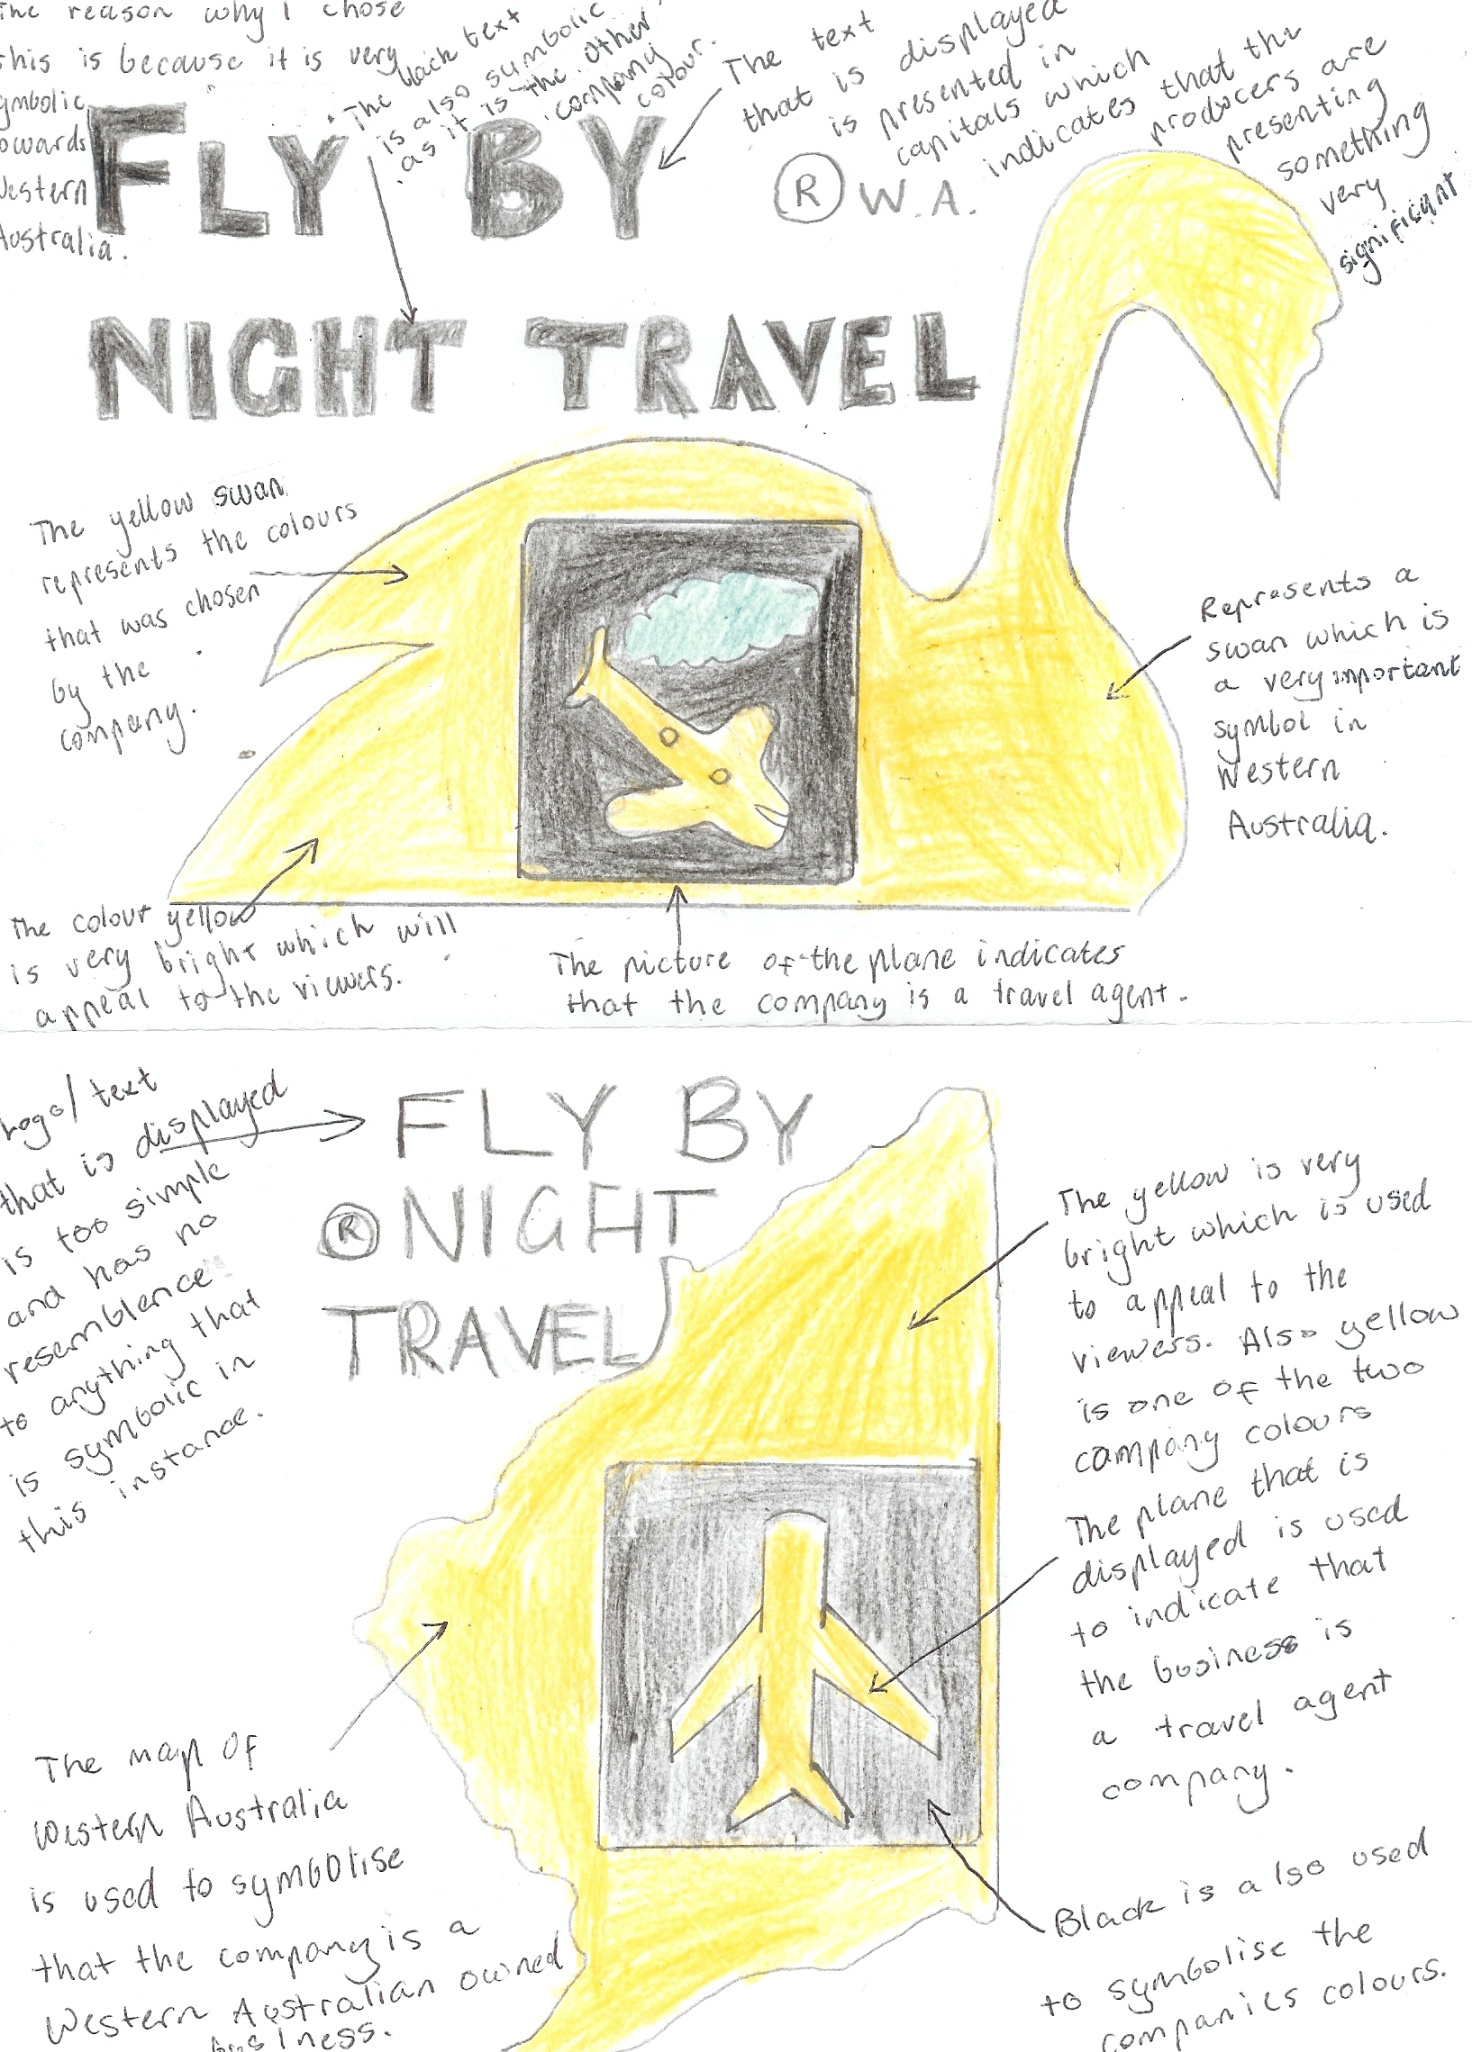 The reason why I chose
this is because it is very
symbolic
towards
Western
Australia.
The black text
is also symbolic
as it is the other
company
colour.
The text
that is displayed
is presented in
capitals which
indicates that the
producers are
presenting
something
very
significant
FLY BY
® W.A.
NIGHT TRAVEL
The yellow swan
represents the colours
that was chosen
by the
company.
Represents a
swan which is
a very important
symbol in
Western
Australia.
The colour yellow
is very bright which will
appeal to the viewers.
The picture of the plane indicates
that the company is a travel agent.
Logo/text
that is displayed
is too simple
and has no
resemblence
to anything that
is symbolic in
this instance.
FLY BY
® NIGHT
TRAVEL
The yellow is very
bright which is used
to appeal to the
viewers. Also yellow
is one of the two
company colours
The plane that is
displayed is used
to indicate that
the business is
a travel agent
company.
The map of
Western Australia
is used to symbolise
that the company is a
Western Australian owned
business.
Black is also used
to symbolise the
companies colours.